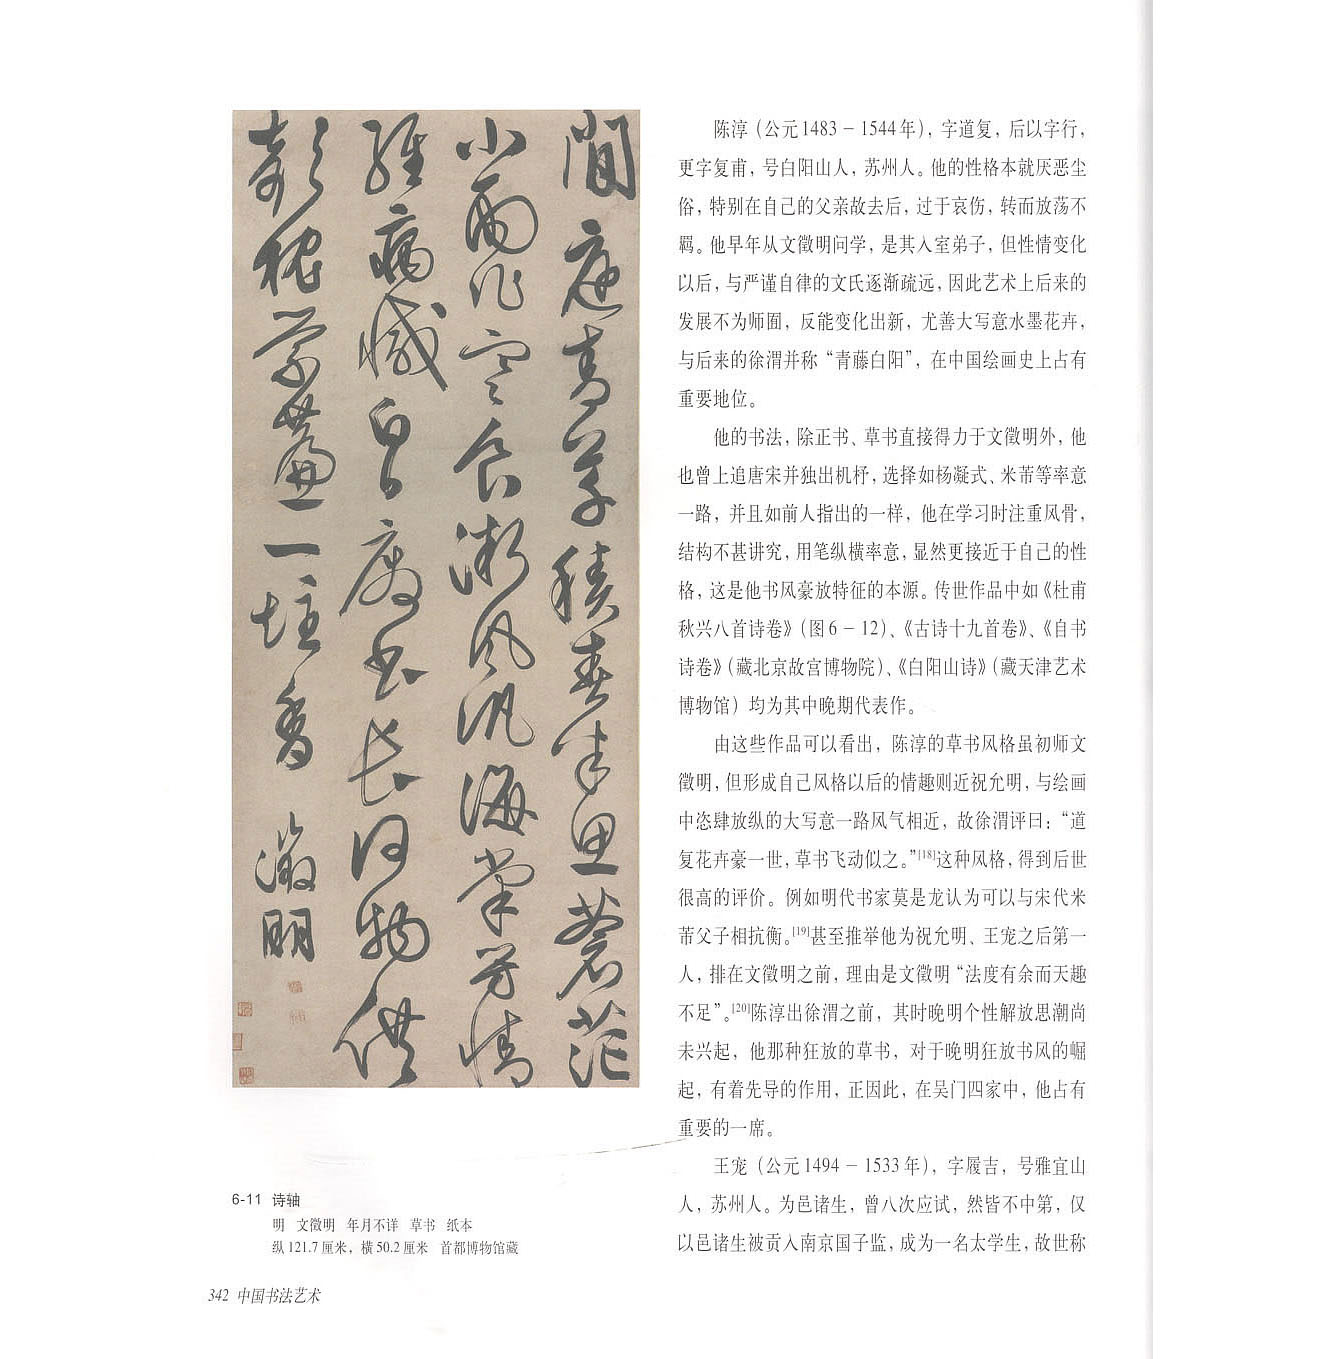 閒庭青草積春半思蒼茫
小雨作寒食風汎海棠芳情
經病減白日廢書長何物供
欹枕簾一炷香 徵明
6-11 诗轴
明 文徵明 年月不详 草书 纸本
纵121.7厘米，横50.2厘米 首都博物馆藏
陈淳（公元1483－1544年），字道复，后以字行，
更字复甫，号白阳山人，苏州人。他的性格本就厌恶尘
俗，特别在自己的父亲故去后，过于哀伤，转而放荡不
羁。他早年从文徵明问学，是其入室弟子，但性情变化
以后，与严谨自律的文氏逐渐疏远，因此艺术上后来的
发展不为师囿，反能变化出新，尤善大写意水墨花卉，
与后来的徐渭并称“青藤白阳”，在中国绘画史上占有
重要地位。
他的书法，除正书、草书直接得力于文徵明外，他
也曾上追唐宋并独出机杼，选择如杨凝式、米芾等率意
一路，并且如前人指出的一样，他在学习时注重风骨，
结构不甚讲究，用笔纵横率意，显然更接近于自己的性
格，这是他书风豪放特征的本源。传世作品中如《杜甫
秋兴八首诗卷》（图6－12）、《古诗十九首卷》、《自书
诗卷》（藏北京故宫博物院）、《白阳山诗》（藏天津艺术
博物馆）均为其中晚期代表作。
由这些作品可以看出，陈淳的草书风格虽初师文
徵明，但形成自己风格以后的情趣则近祝允明，与绘画
中恣肆放纵的大写意一路风气相近，故徐渭评曰：“道
复花卉豪一世，草书飞动似之。”[18]这种风格，得到后世
很高的评价。例如明代书家莫是龙认为可以与宋代米
芾父子相抗衡。[19]甚至推举他为祝允明、王宠之后第一
人，排在文徵明之前，理由是文徵明“法度有余而天趣
不足”。[20]陈淳出徐渭之前，其时晚明个性解放思潮尚
未兴起，他那种狂放的草书，对于晚明狂放书风的崛
起，有着先导的作用，正因此，在吴门四家中，他占有
重要的一席。
王宠（公元1494－1533年），字履吉，号雅宜山
人，苏州人。为邑诸生，曾八次应试，然皆不中第，仅
以邑诸生被贡入南京国子监，成为一名太学生，故世称
342 中国书法艺术